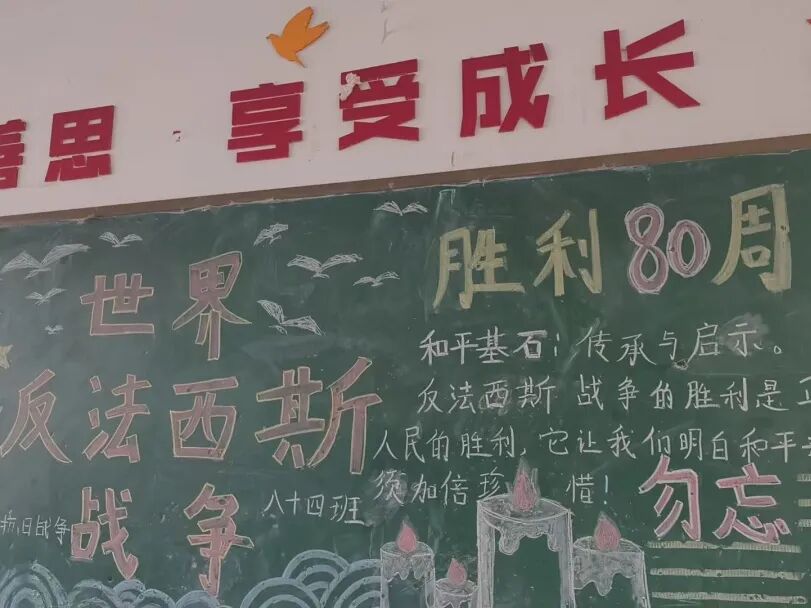 善思 享受成长
世界
反法西斯
战争
抗日战争
八十四班
胜利80周
和平基石：传承与启示。
反法西斯 战争的胜利是正
人民的胜利，它让我们明白和平
须加倍珍 惜！
勿忘